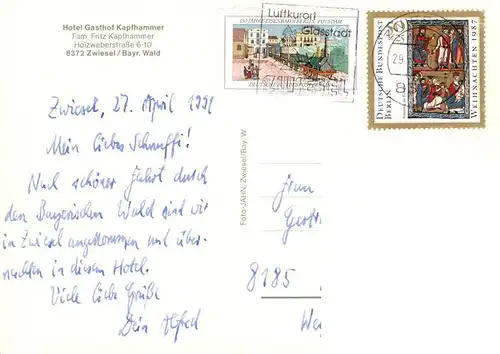 Hotel Gasthof Kapfhammer
Fam. Fritz Kapfhammer
Holzweberstraße 6-10
8372 Zwiesel / Bayr. Wald
Luftkurort
Glasstadt
DEUTSCHE BUNDESPOST
BERLIN
WEIHNACHTEN 1987
29.
8
Zwiesel, 27. April 1991
Mein liebes Schnuffi!
Nach schöner Fahrt durch
den Bayerischen Wald sind wir
in Zwiesel angekommen und über-
nachten in diesem Hotel.
Viele liebe Grüße
Dein Alfred
Foto-JAHN, Zwiesel/Bay. W
Frau
8185